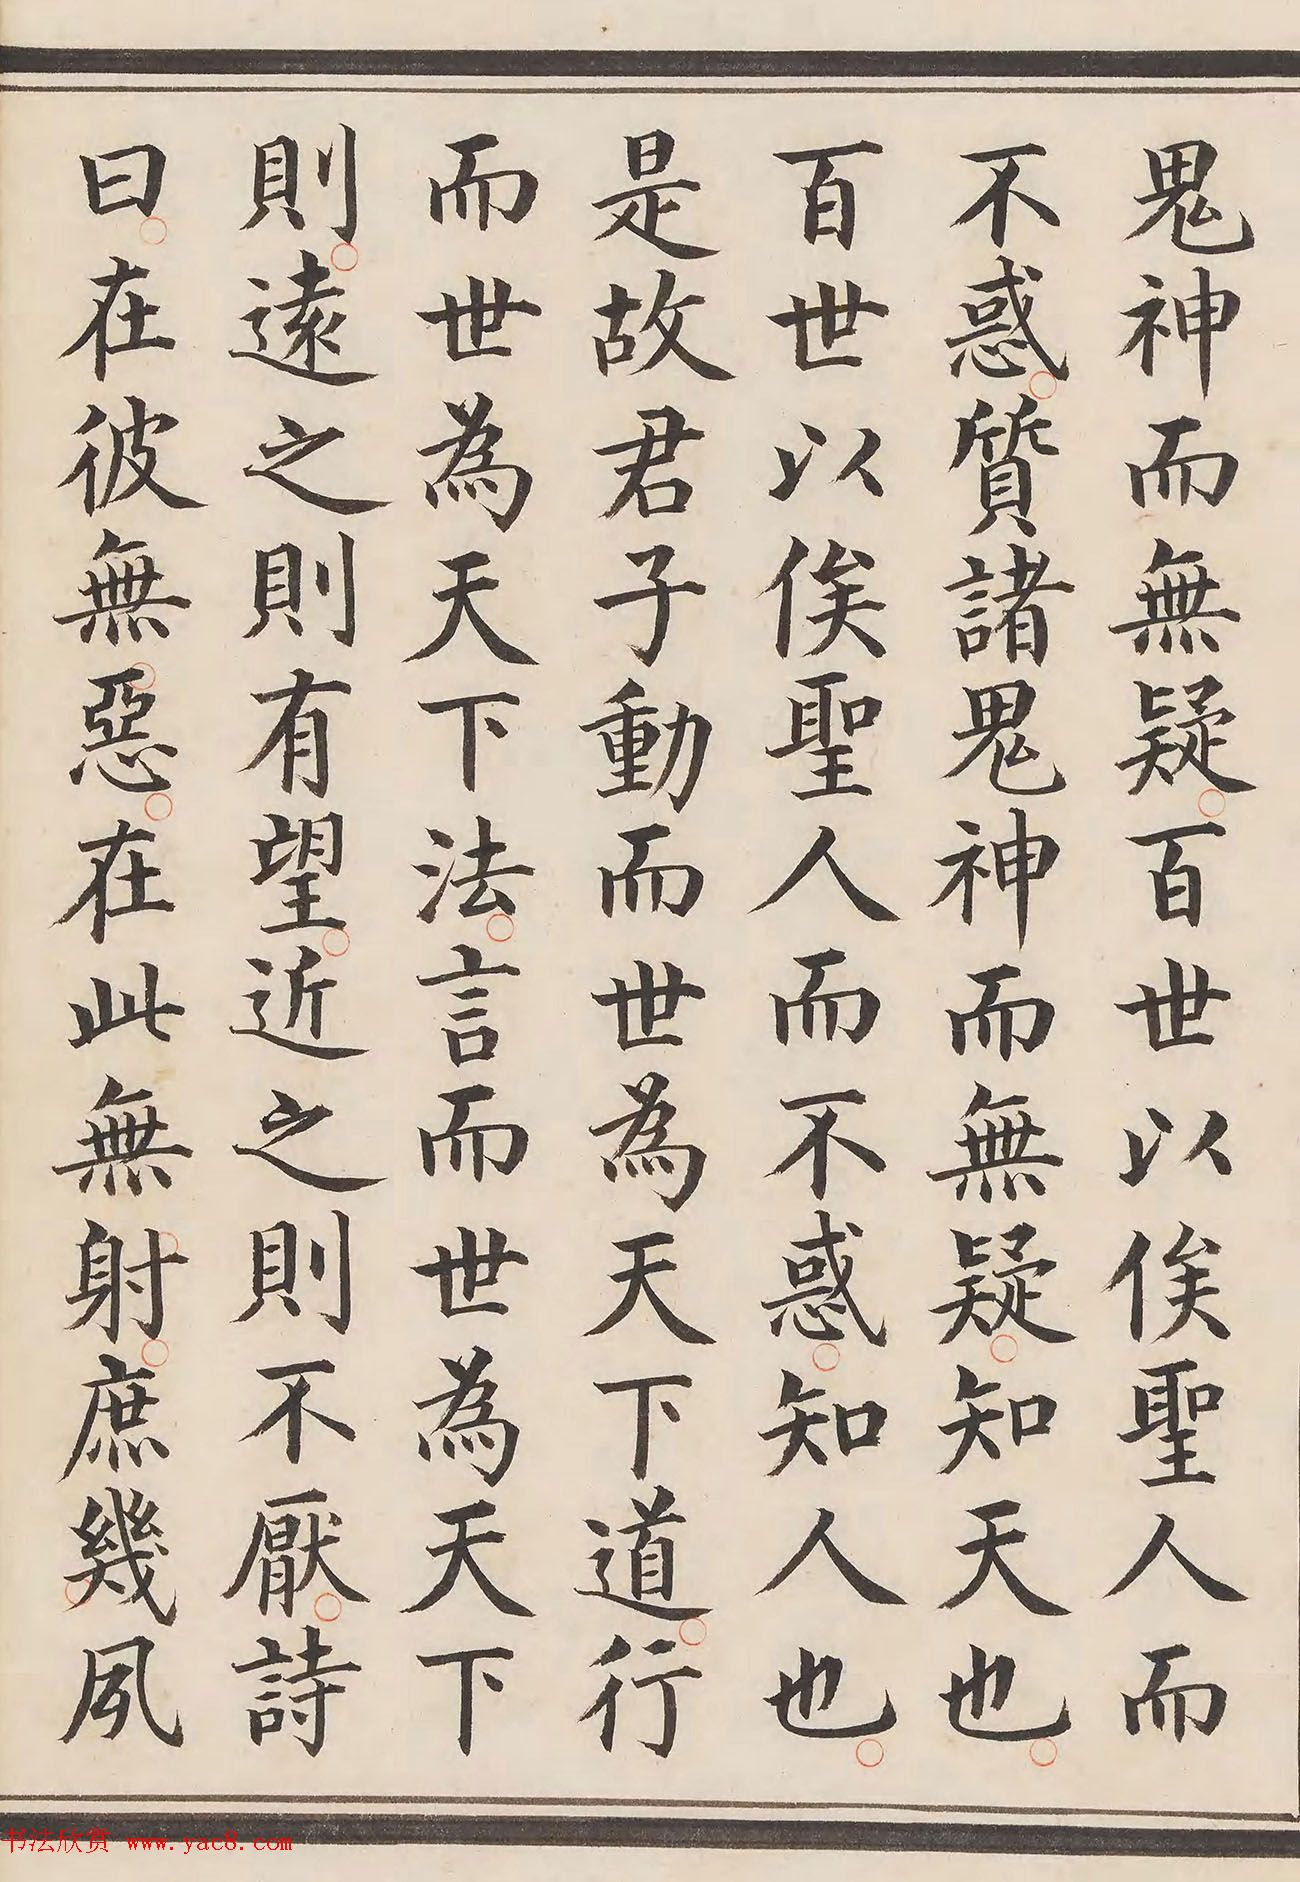 鬼神而無疑百世以俟聖人而
不惑質諸鬼神而無疑知天也
百世以俟聖人而不惑知人也
是故君子動而世為天下道行
而世為天下法言而世為天下
則遠之則有望近之則不厭詩
曰在彼無惡在此無射庶幾夙
书法欣赏 www.yac8.com